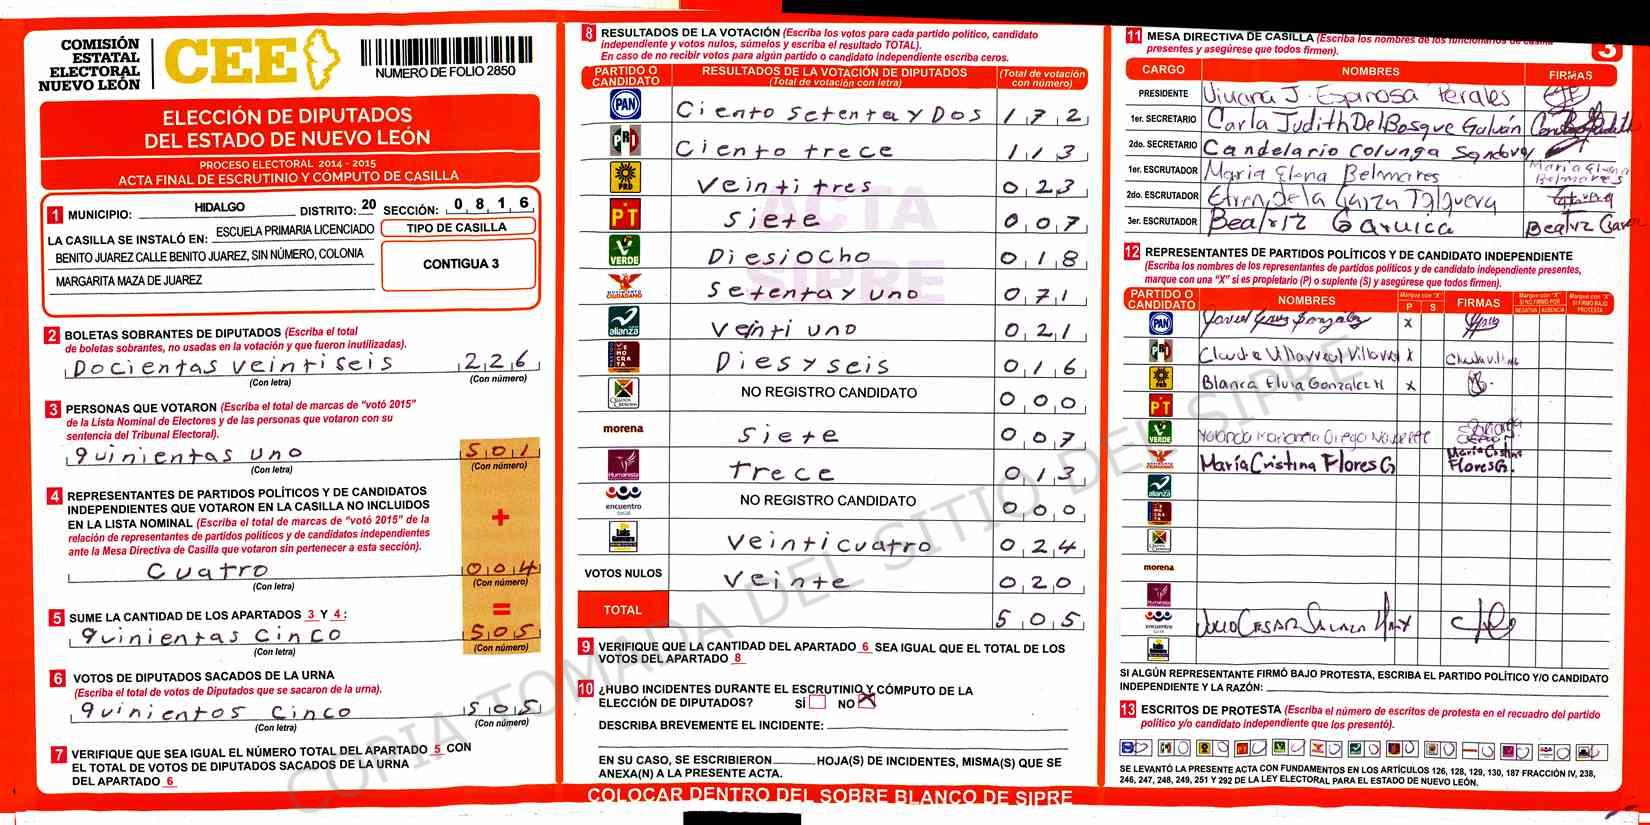 COMISIÓN
ESTATAL
ELECTORAL
NUEVO LEÓN
CEE
NUMERO DE FOLIO 2850
ELECCIÓN DE DIPUTADOS
DEL ESTADO DE NUEVO LEÓN
PROCESO ELECTORAL 2014 - 2015
ACTA FINAL DE ESCRUTINIO Y CÓMPUTO DE CASILLA
1 MUNICIPIO: HIDALGO DISTRITO: 20 SECCIÓN: 0 8 1 6
LA CASILLA SE INSTALÓ EN: ESCUELA PRIMARIA LICENCIADO
BENITO JUAREZ CALLE BENITO JUAREZ, SIN NÚMERO, COLONIA
MARGARITA MAZA DE JUAREZ
TIPO DE CASILLA
CONTIGUA 3
2 BOLETAS SOBRANTES DE DIPUTADOS (Escriba el total
de boletas sobrantes, no usadas en la votación y que fueron inutilizadas).
Docientas veintiseis 2 2 6
(Con letra) (Con número)
3 PERSONAS QUE VOTARON (Escriba el total de marcas de "votó 2015"
de la Lista Nominal de Electores y de las personas que votaron con su
sentencia del Tribunal Electoral).
quinientas uno 5 0 1
(Con letra) (Con número)
4 REPRESENTANTES DE PARTIDOS POLÍTICOS Y DE CANDIDATOS
INDEPENDIENTES QUE VOTARON EN LA CASILLA NO INCLUIDOS
EN LA LISTA NOMINAL (Escriba el total de marcas de "votó 2015" de la
relación de representantes de partidos políticos y de candidatos independientes
ante la Mesa Directiva de Casilla que votaron sin pertenecer a esta sección).
+
Cuatro 0 0 4
(Con letra) (Con número)
=
5 SUME LA CANTIDAD DE LOS APARTADOS 3 Y 4:
quinientas cinco 5 0 5
(Con letra) (Con número)
6 VOTOS DE DIPUTADOS SACADOS DE LA URNA
(Escriba el total de votos de Diputados que se sacaron de la urna).
quinientos cinco 5 0 5
(Con letra) (Con número)
7 VERIFIQUE QUE SEA IGUAL EL NÚMERO TOTAL DEL APARTADO 5 CON
EL TOTAL DE VOTOS DE DIPUTADOS SACADOS DE LA URNA
DEL APARTADO 6
8 RESULTADOS DE LA VOTACIÓN (Escriba los votos para cada partido político, candidato
independiente y votos nulos, súmelos y escriba el resultado TOTAL).
En caso de no recibir votos para algún partido o candidato independiente escriba ceros.
PARTIDO O CANDIDATO RESULTADOS DE LA VOTACIÓN DE DIPUTADOS (Total de votación con letra) (Total de votación con número)
PAN Ciento setenta y Dos 1 7 2
PRI Ciento trece 1 1 3
PRD veinti tres 0 2 3
PT siete 0 0 7
VERDE Diesiocho 0 1 8
MOVIMIENTO CIUDADANO setenta y uno 0 7 1
alianza veinti uno 0 2 1
Dies y seis 0 1 6
NO REGISTRO CANDIDATO 0 0 0
morena siete 0 0 7
Humanista trece 0 1 3
encuentro social NO REGISTRO CANDIDATO 0 0 0
veinticuatro 0 2 4
VOTOS NULOS veinte 0 2 0
TOTAL 5 0 5
9 VERIFIQUE QUE LA CANTIDAD DEL APARTADO 6 SEA IGUAL QUE EL TOTAL DE LOS
VOTOS DEL APARTADO 8
10 ¿HUBO INCIDENTES DURANTE EL ESCRUTINIO Y CÓMPUTO DE LA
ELECCIÓN DE DIPUTADOS? SÍ NO X
DESCRIBA BREVEMENTE EL INCIDENTE:
EN SU CASO, SE ESCRIBIERON HOJA(S) DE INCIDENTES, MISMA(S) QUE SE
ANEXA(N) A LA PRESENTE ACTA.
COLOCAR DENTRO DEL SOBRE BLANCO DE SIPRE
ACTA
SIPRE
COPIA TOMADA DEL SITIO DEL SIPRE
11 MESA DIRECTIVA DE CASILLA (Escriba los nombres de los funcionarios de casilla
presentes y asegúrese que todos firmen).
3
CARGO NOMBRES FIRMAS
PRESIDENTE Viviana J. Espinosa Perales
1er. SECRETARIO Carla Judith Del Bosque Galván
2do. SECRETARIO Candelario Colunga Sandoval
1er. ESCRUTADOR Maria Elena Belmares Maria Elena Belmares
2do. ESCRUTADOR Efren de la Garza
3er. ESCRUTADOR Beatriz Garnica Beatriz
12 REPRESENTANTES DE PARTIDOS POLÍTICOS Y DE CANDIDATO INDEPENDIENTE
(Escriba los nombres de los representantes de partidos políticos y de candidato independiente presentes,
marque con una "X" si es propietario (P) o suplente (S) y asegúrese que todos firmen).
PARTIDO O CANDIDATO NOMBRES Marque con "X" P S FIRMAS Marque con "X" SI NO FIRMÓ POR NEGATIVA AUSENCIA Marque con "X" SI FIRMÓ BAJO PROTESTA
PAN Javier González X
PRI Claudia Villarreal X
PRD Blanca Elvia Gonzalez M X
PT
VERDE Yolanda
María Cristina Flores G. María Cristina Flores G.
alianza
morena
Humanista
encuentro social Julio Cesar Salazar
SI ALGÚN REPRESENTANTE FIRMÓ BAJO PROTESTA, ESCRIBA EL PARTIDO POLÍTICO Y/O CANDIDATO
INDEPENDIENTE Y LA RAZÓN:
13 ESCRITOS DE PROTESTA (Escriba el número de escritos de protesta en el recuadro del partido
político y/o candidato independiente que los presentó).
SE LEVANTÓ LA PRESENTE ACTA CON FUNDAMENTOS EN LOS ARTÍCULOS 126, 128, 129, 130, 187 FRACCIÓN IV, 238,
246, 247, 248, 249, 251 Y 292 DE LA LEY ELECTORAL PARA EL ESTADO DE NUEVO LEÓN.